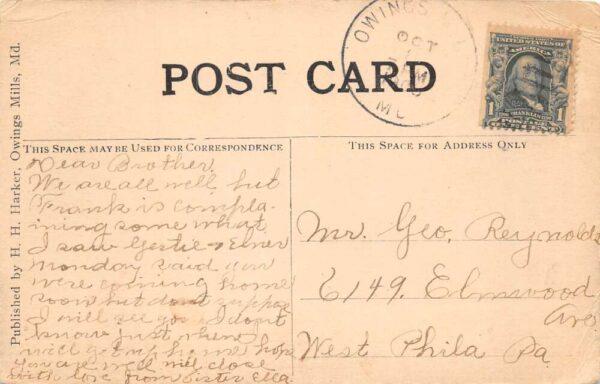 OWINGS
OCT
7
M
MD.
UNITED STATES OF
AMERICA
1
FRANKLIN
1
Published by H. H. Harker, Owings Mills, Md.
POST CARD
THIS SPACE MAY BE USED FOR CORRESPONDENCE
THIS SPACE FOR ADDRESS ONLY
Dear Brother.
We are all well but
Frank is complai-
ning some what
I saw Gertie & Elmer
Monday said you
were coming home
soon but dont suppose
I will see you I dont
know just when
will get up home hope
you are well will close
with love from Sister Ella
Mr. Geo. Reynolds
6149. Elmwood
Ave
West Phila Pa